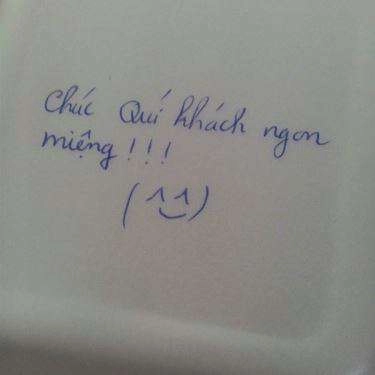 Chúc Quí khách ngon
miệng!!!
(^‿^)